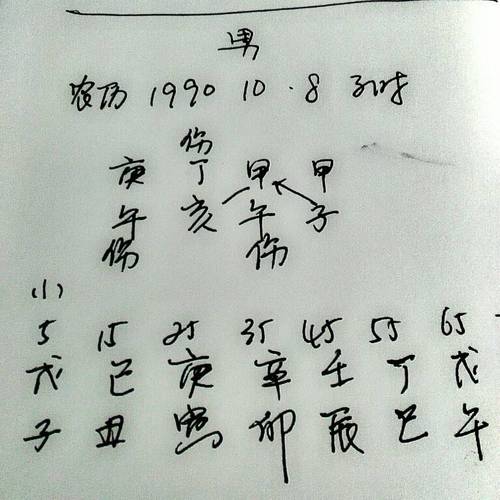 男
农历 1990 10.8 子时
伤
庚 丁 甲 甲
午 亥 午 子
伤 伤
(小)
5 15 25 35 45 55 65
戊 己 庚 辛 壬 丁 戊
子 丑 寅 卯 辰 巳 午